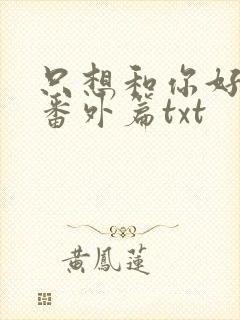 只想和你好
番外篇txt
黄鳳蓮